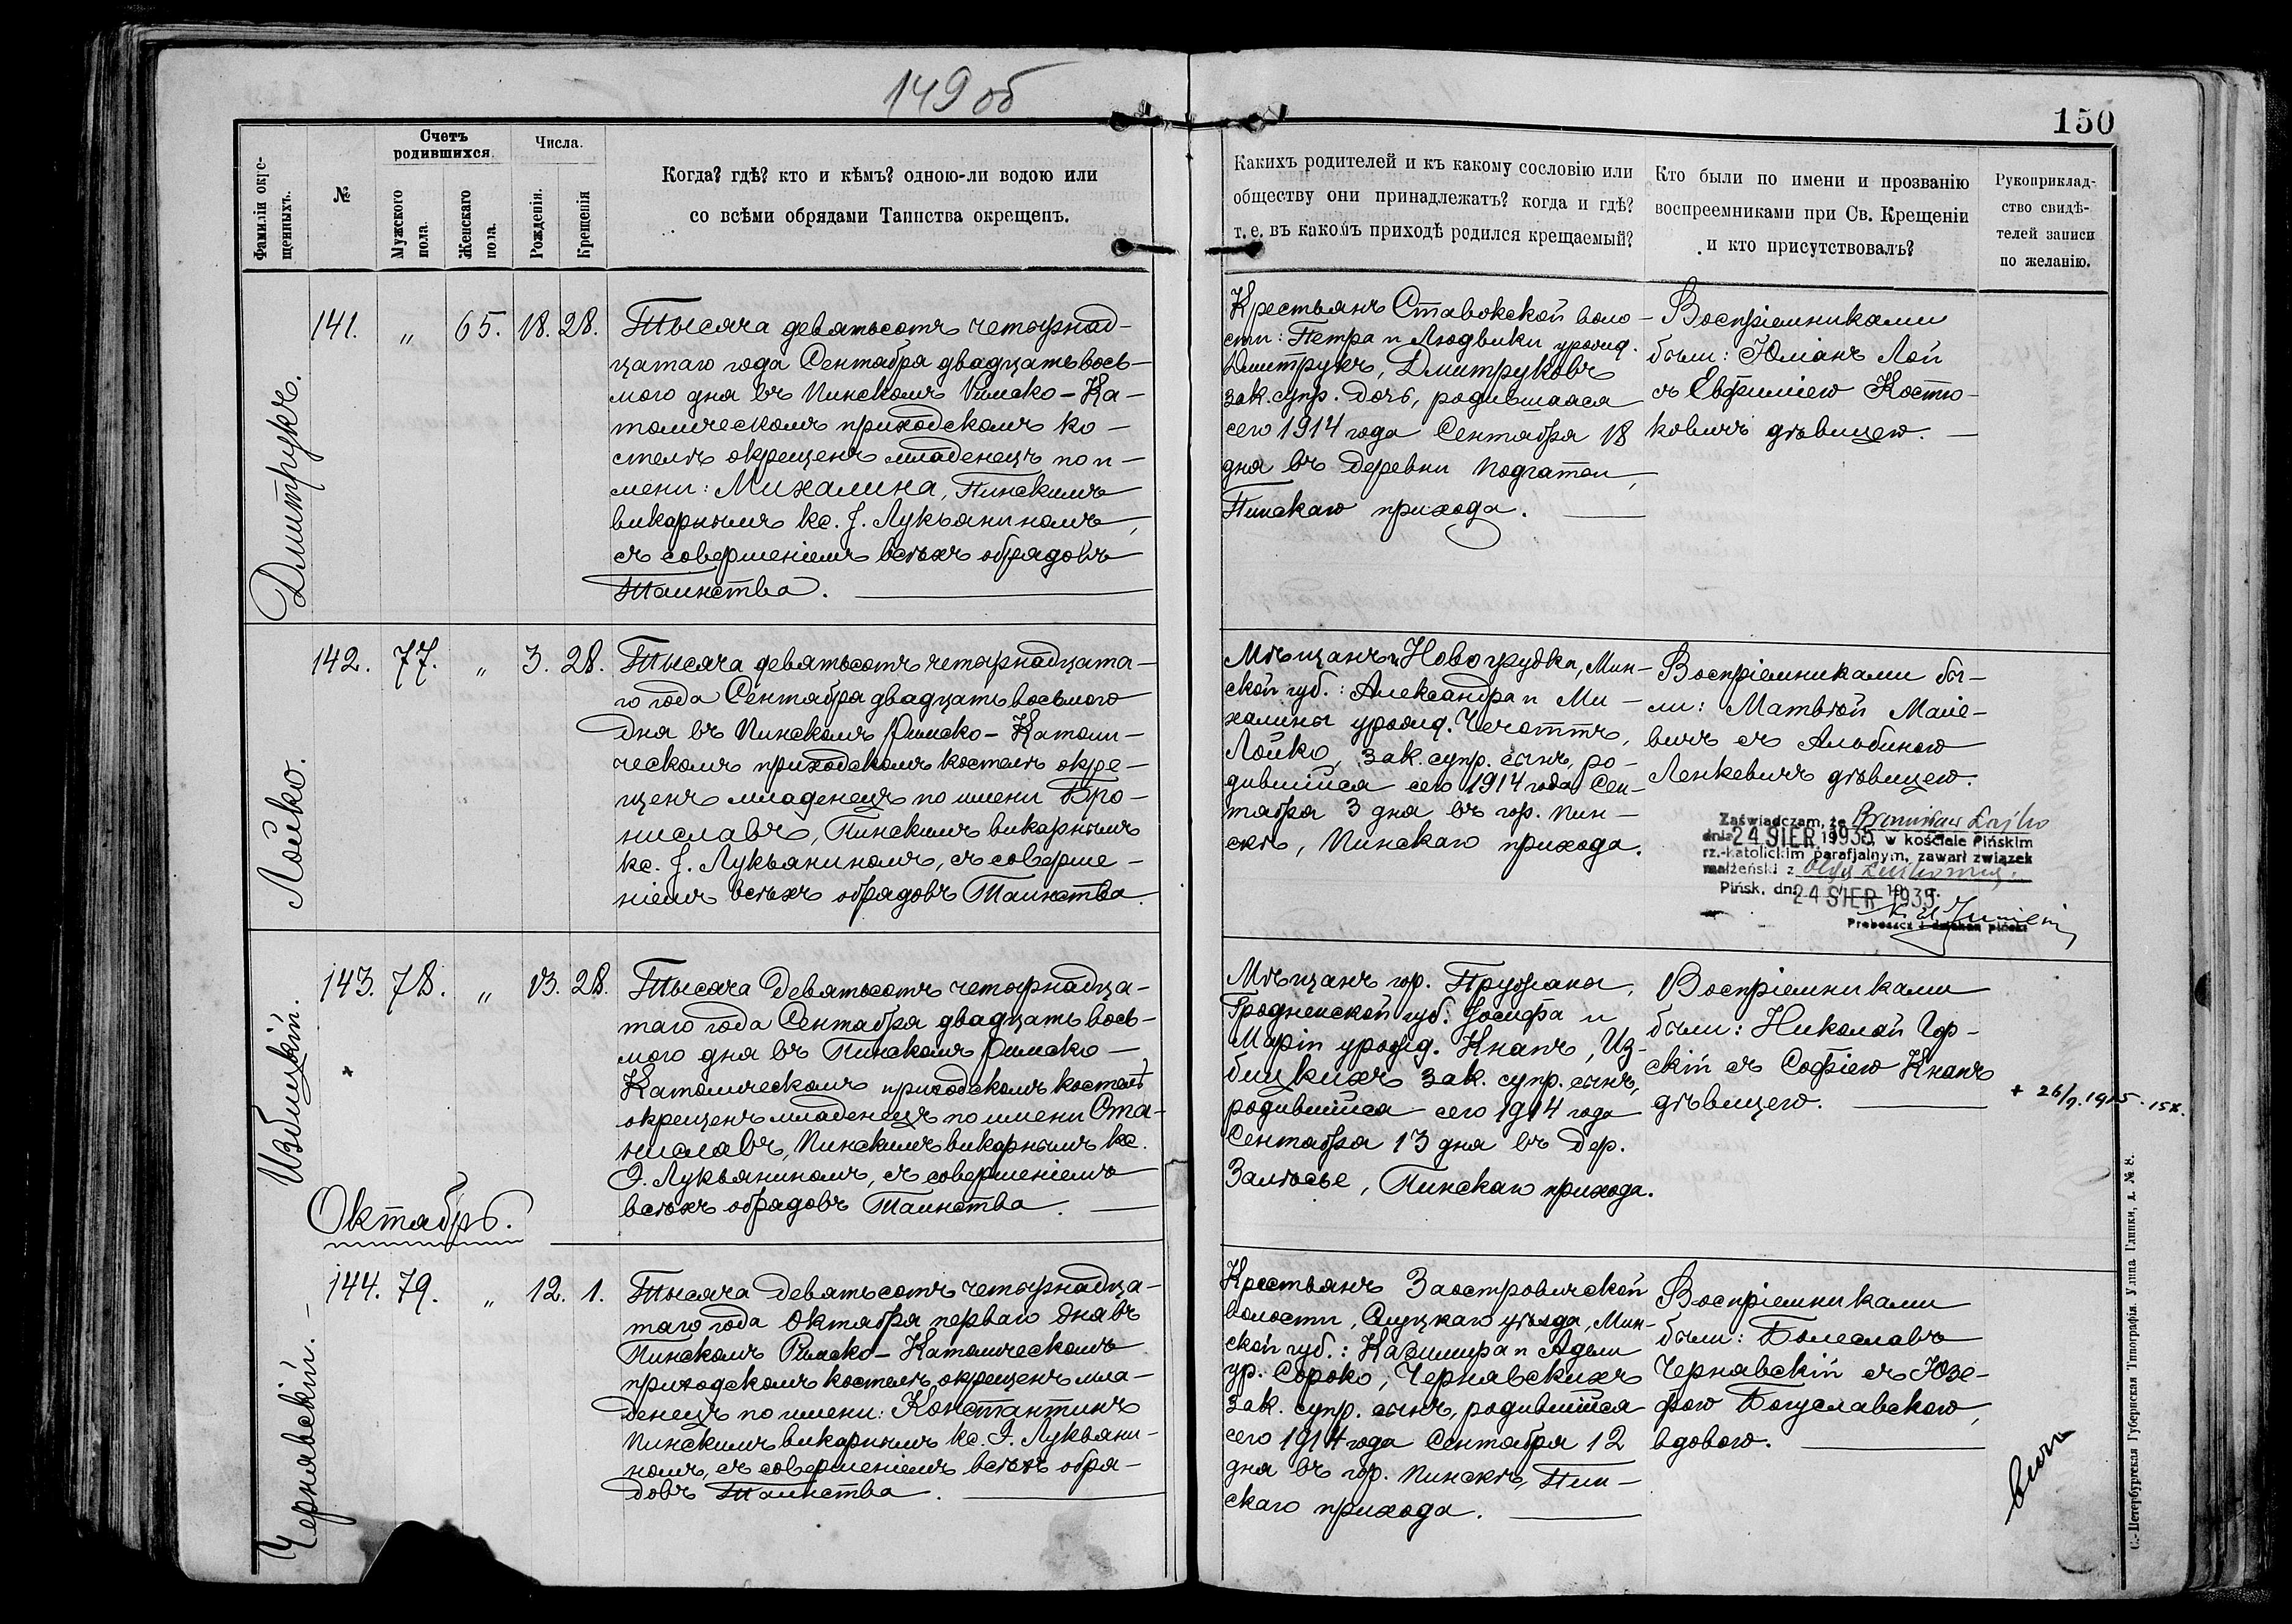 149 об
150
Фамиліи окре-
щенныхъ.
№
Счетъ
родившихся.
Мужского
пола.
Женскаго
пола.
Числа.
Рожденія.
Крещенія
Когда? гдѣ? кто и кѣмъ? одною-ли водою или
со всѣми обрядами Таинства окрещенъ.
Какихъ родителей и къ какому сословію или
обществу они принадлежатъ? когда и гдѣ?
т. е. въ какомъ приходѣ родился крещаемый?
Кто были по имени и прозванію
воспреемниками при Св. Крещеніи
и кто присутствовалъ?
Рукоприклад-
ство свидѣ-
телей записи
по желанію.
Дмитрукъ.
141. „ 65. 18. 28.
Тысяча девятьсотъ четырнад-
цатаго года Сентября двадцать вось-
мого дня въ Пинскомъ Римско-Ка-
толическомъ приходскомъ ко-
стелѣ окрещенъ младенецъ по и-
мени: Михалина, Пинскимъ
викарнымъ кс. J. Лукьяниномъ,
съ совершеніемъ всѣхъ обрядовъ
Таинства.
Крестьянъ Ставокской воло-
сти: Петра и Людвики урожд.
Дмитрукъ, Дмитруковъ
зак. супр. дочь, родившаяся
сего 1914 года Сентября 18
дня въ деревни
Пинскаго прихода.
Воспріемниками
были: Юліанъ Лой
съ Евфиміею Костю-
ковичъ дѣвицею.
Лойко.
142. 77. „ 3. 28.
Тысяча девятьсотъ четырнадцата-
го года Сентября двадцать восьмого
дня въ Пинскомъ Римско-Католи-
ческомъ приходскомъ костелѣ окре-
щенъ младенецъ по имени Бро-
ниславъ, Пинскимъ викарнымъ
кс. J. Лукьяниномъ, съ соверше-
ніемъ всѣхъ обрядовъ Таинства.
Мѣщанъ Новогрудка, Мин-
ской губ.: Александра и Ми-
халины урожд. Чечоттъ,
Лойко, зак. супр. сынъ, ро-
дившійся сего 1914 года Сен-
тября 3 дня въ гор. Пин-
скѣ, Пинскаго прихода.
Воспріемниками бы-
ли: Матвѣй Маце-
вичъ съ Альбиною
Ленкевичъ дѣвицею.
Zaświadczam, że Bronisław Łojko
dnia 24 SIER. 1935 w kościele Pińskim
rz.-katolickim parafjalnym, zawarł związek
małżeński z Olgą
Pińsk, dn. 24 SIER 1935 r.
Proboszcz i dziekan piński
Избицкій.
143. 78. „ 13. 28.
Тысяча девятьсотъ четырнадца-
таго года Сентября двадцать вось-
мого дня въ Пинскомъ Римско-
Католическомъ приходскомъ костелѣ
окрещенъ младенецъ по имени Ста-
ниславъ, Пинскимъ викарнымъ кс.
J. Лукьяниномъ, съ совершеніемъ
всѣхъ обрядовъ Таинства.
Мѣщанъ гор. Пружаны,
Гродненской губ. Іосифа и
Маріи урожд. Кнапъ, Из-
бицкихъ зак. супр. сынъ,
родившійся сего 1914 года
Сентября 13 дня въ дер.
Залѣсье, Пинскаго прихода.
Воспріемниками
были: Николай Гор-
скій съ Софіею Кнапъ
дѣвицею.
+ 26/9.1915.
Октябрь.
Чернявскій.
144. 79. „ 12. 1.
Тысяча девятьсотъ четырнадца-
таго года Октября перваго дня въ
Пинскомъ Римско-Католическомъ
приходскомъ костелѣ окрещенъ мла-
денецъ по имени: Константинъ
Пинскимъ викарнымъ кс. J. Лукьяни-
номъ, съ совершеніемъ всѣхъ обря-
довъ Таинства.
Крестьянъ Заостровичской
волости, Слуцкаго уѣзда, Мин-
ской губ.: Казимира и Адели
ур. Сороко, Чернявскихъ
зак. супр. сынъ, родившійся
сего 1914 года Сентября 12
дня въ гор. Пинскѣ, Пин-
скаго прихода.
Воспріемниками
были: Болеславъ
Чернявскій съ Юзе-
фою Богуславскою,
вдовою.
С.-Петербургская Губернская Типографія. Улица Глинки, д. № 8.